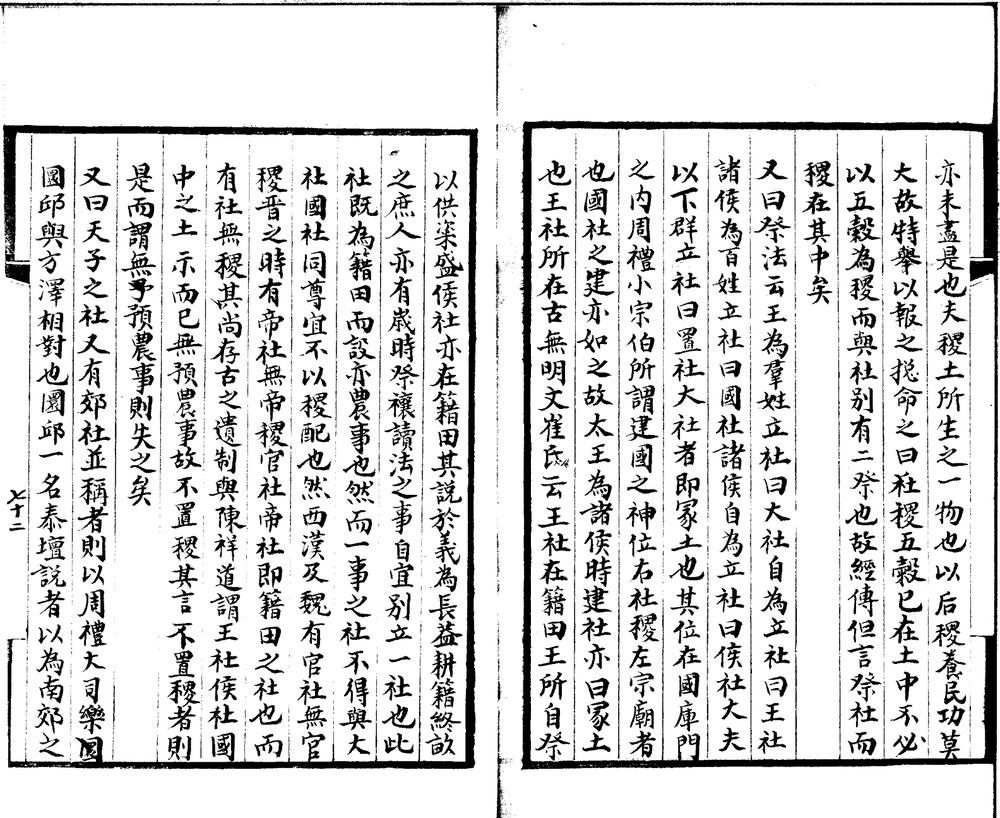 亦未盡是也夫稷土所生之一物也以后稷養民功莫
大故特舉以報之搃命之曰社稷五穀已在土中不必
以五穀為稷而與社别有二祭也故經傳但言祭社而
稷在其中矣
又曰祭法云王為羣姓立社曰大社自為立社曰王社
諸侯為百姓立社曰國社諸侯自為立社曰侯社大夫
以下群立社曰置社大社者即冢土也其位在國庫門
之内周禮小宗伯所謂建國之神位右社稷左宗廟者
也國社之建亦如之故太王為諸侯時建社亦曰冢土
也王社所在古無明文崔氏云王社在籍田王所自祭
以供粢盛侯社亦在籍田其說於義為長葢耕籍終畝
之庶人亦有歲時祭禳讀法之事自宜别立一社也此
社既為籍田而設亦農事也然而一事之社不得與大
社國社同尊宜不以稷配也然西漢及魏有官社無官
稷晋之時有帝社無帝稷官社帝社即籍田之社也而
有社無稷其尚存古之遺制與陳祥道謂王社侯社國
中之土示而已無預農事故不置稷其言不置稷者則
是而謂無予預農事則失之矣
又曰天子之社又有郊社並稱者則以周禮大司樂圜
圜邱與方澤相對也圜邱一名泰壇説者以為南郊之
七十二